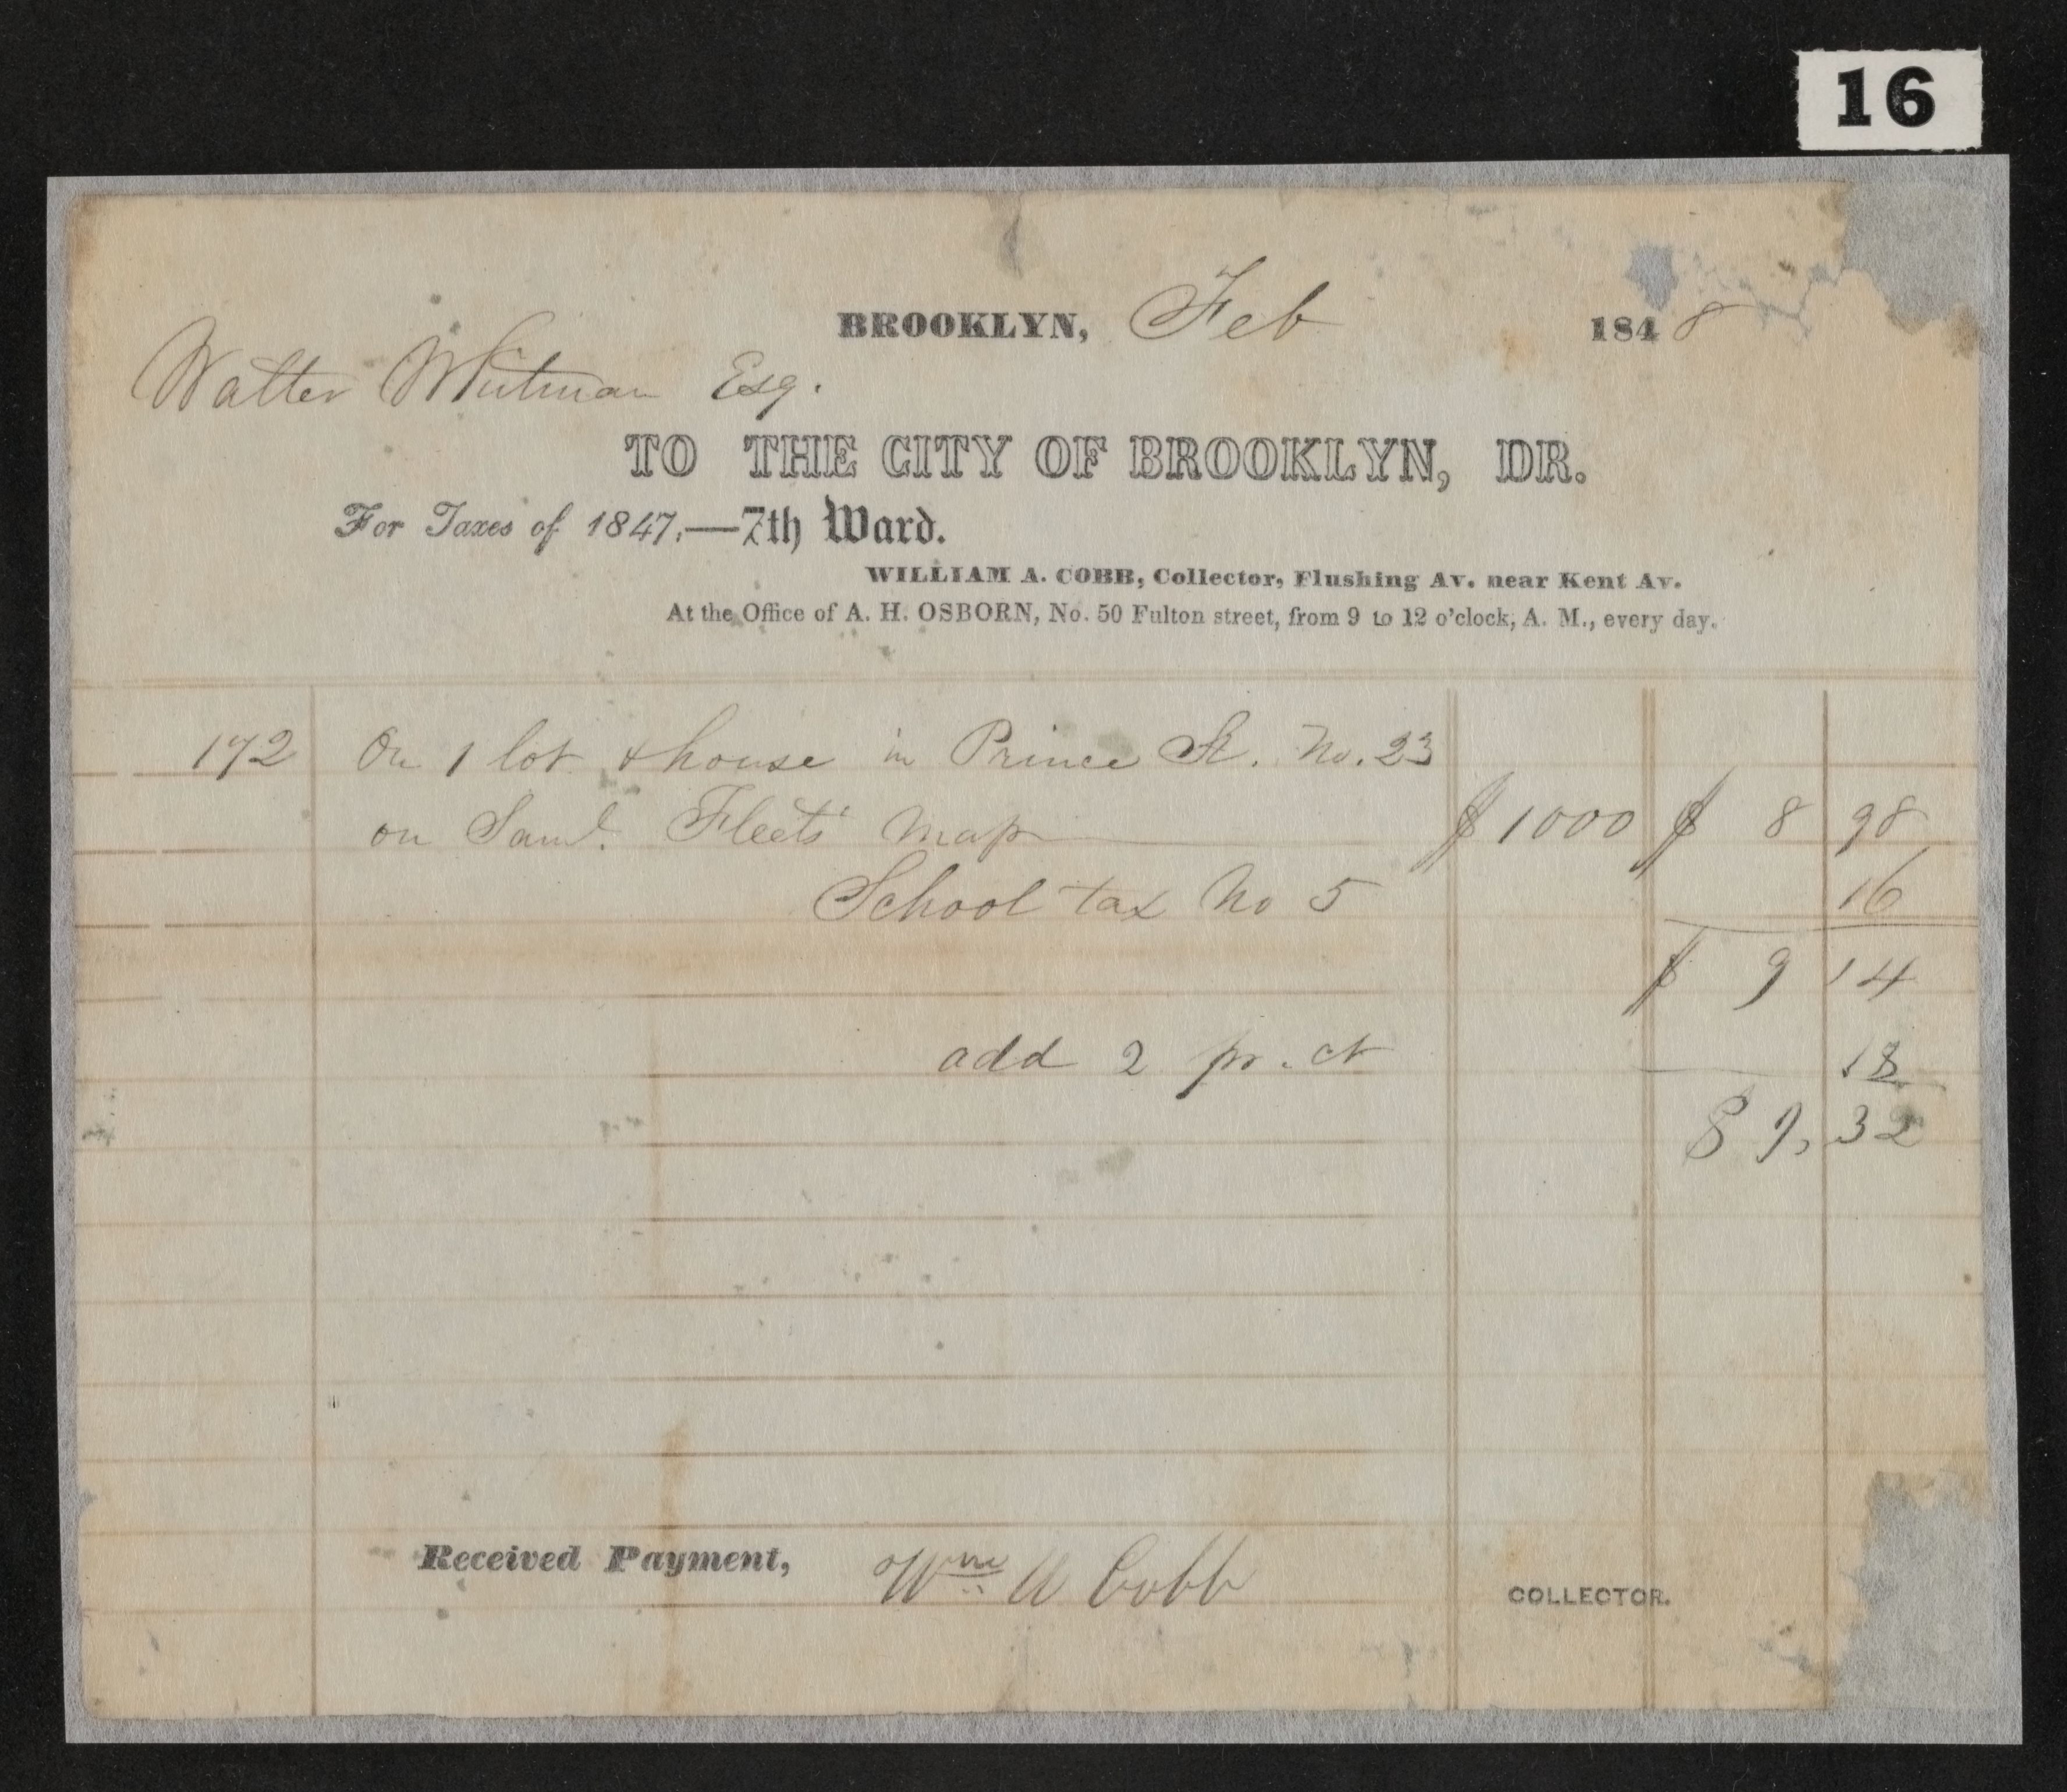 16
BROOKLYN, Feb 1848
Walter Whitman Esq.
TO THE CITY OF BROOKLYN, DR.
For Taxes of 1847,—7th Ward.
WILLIAM A. COBB, Collector, Flushing Av. near Kent Av.
At the Office of A. H. OSBORN, No. 50 Fulton street, from 9 to 12 o'clock, A. M., every day.
172 On 1 lot & house in Prince St. No. 23
on Saml. Fleets' map $1000 $ 8 98
School tax No 5 16
$ 9 14
add 2 pr. ct 18
$ 9, 32
Received Payment, Wm A Cobb COLLECTOR.